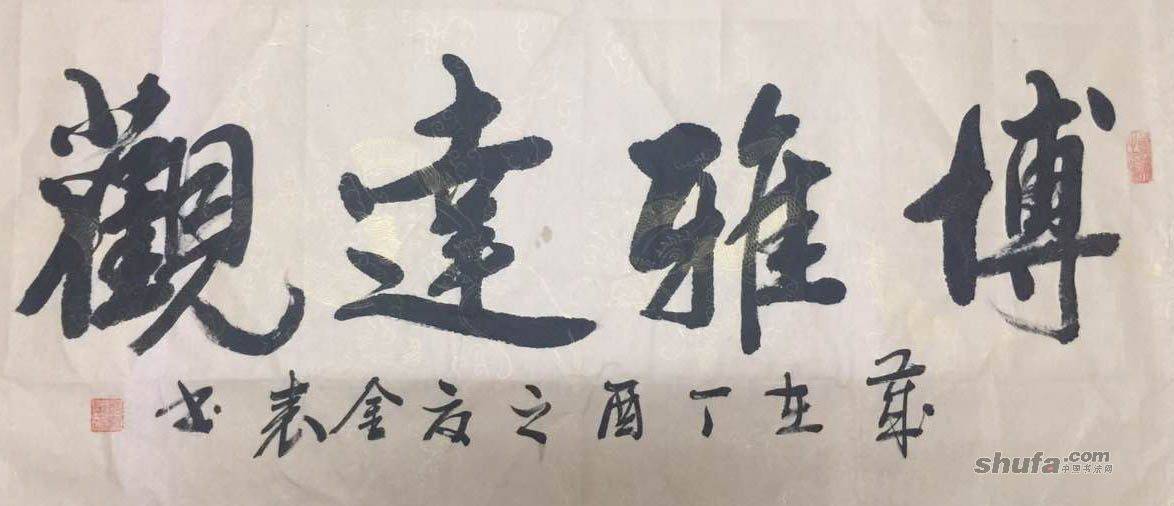 博雅達觀
歲在丁酉之夏金表书
shufa.com
中国书法网